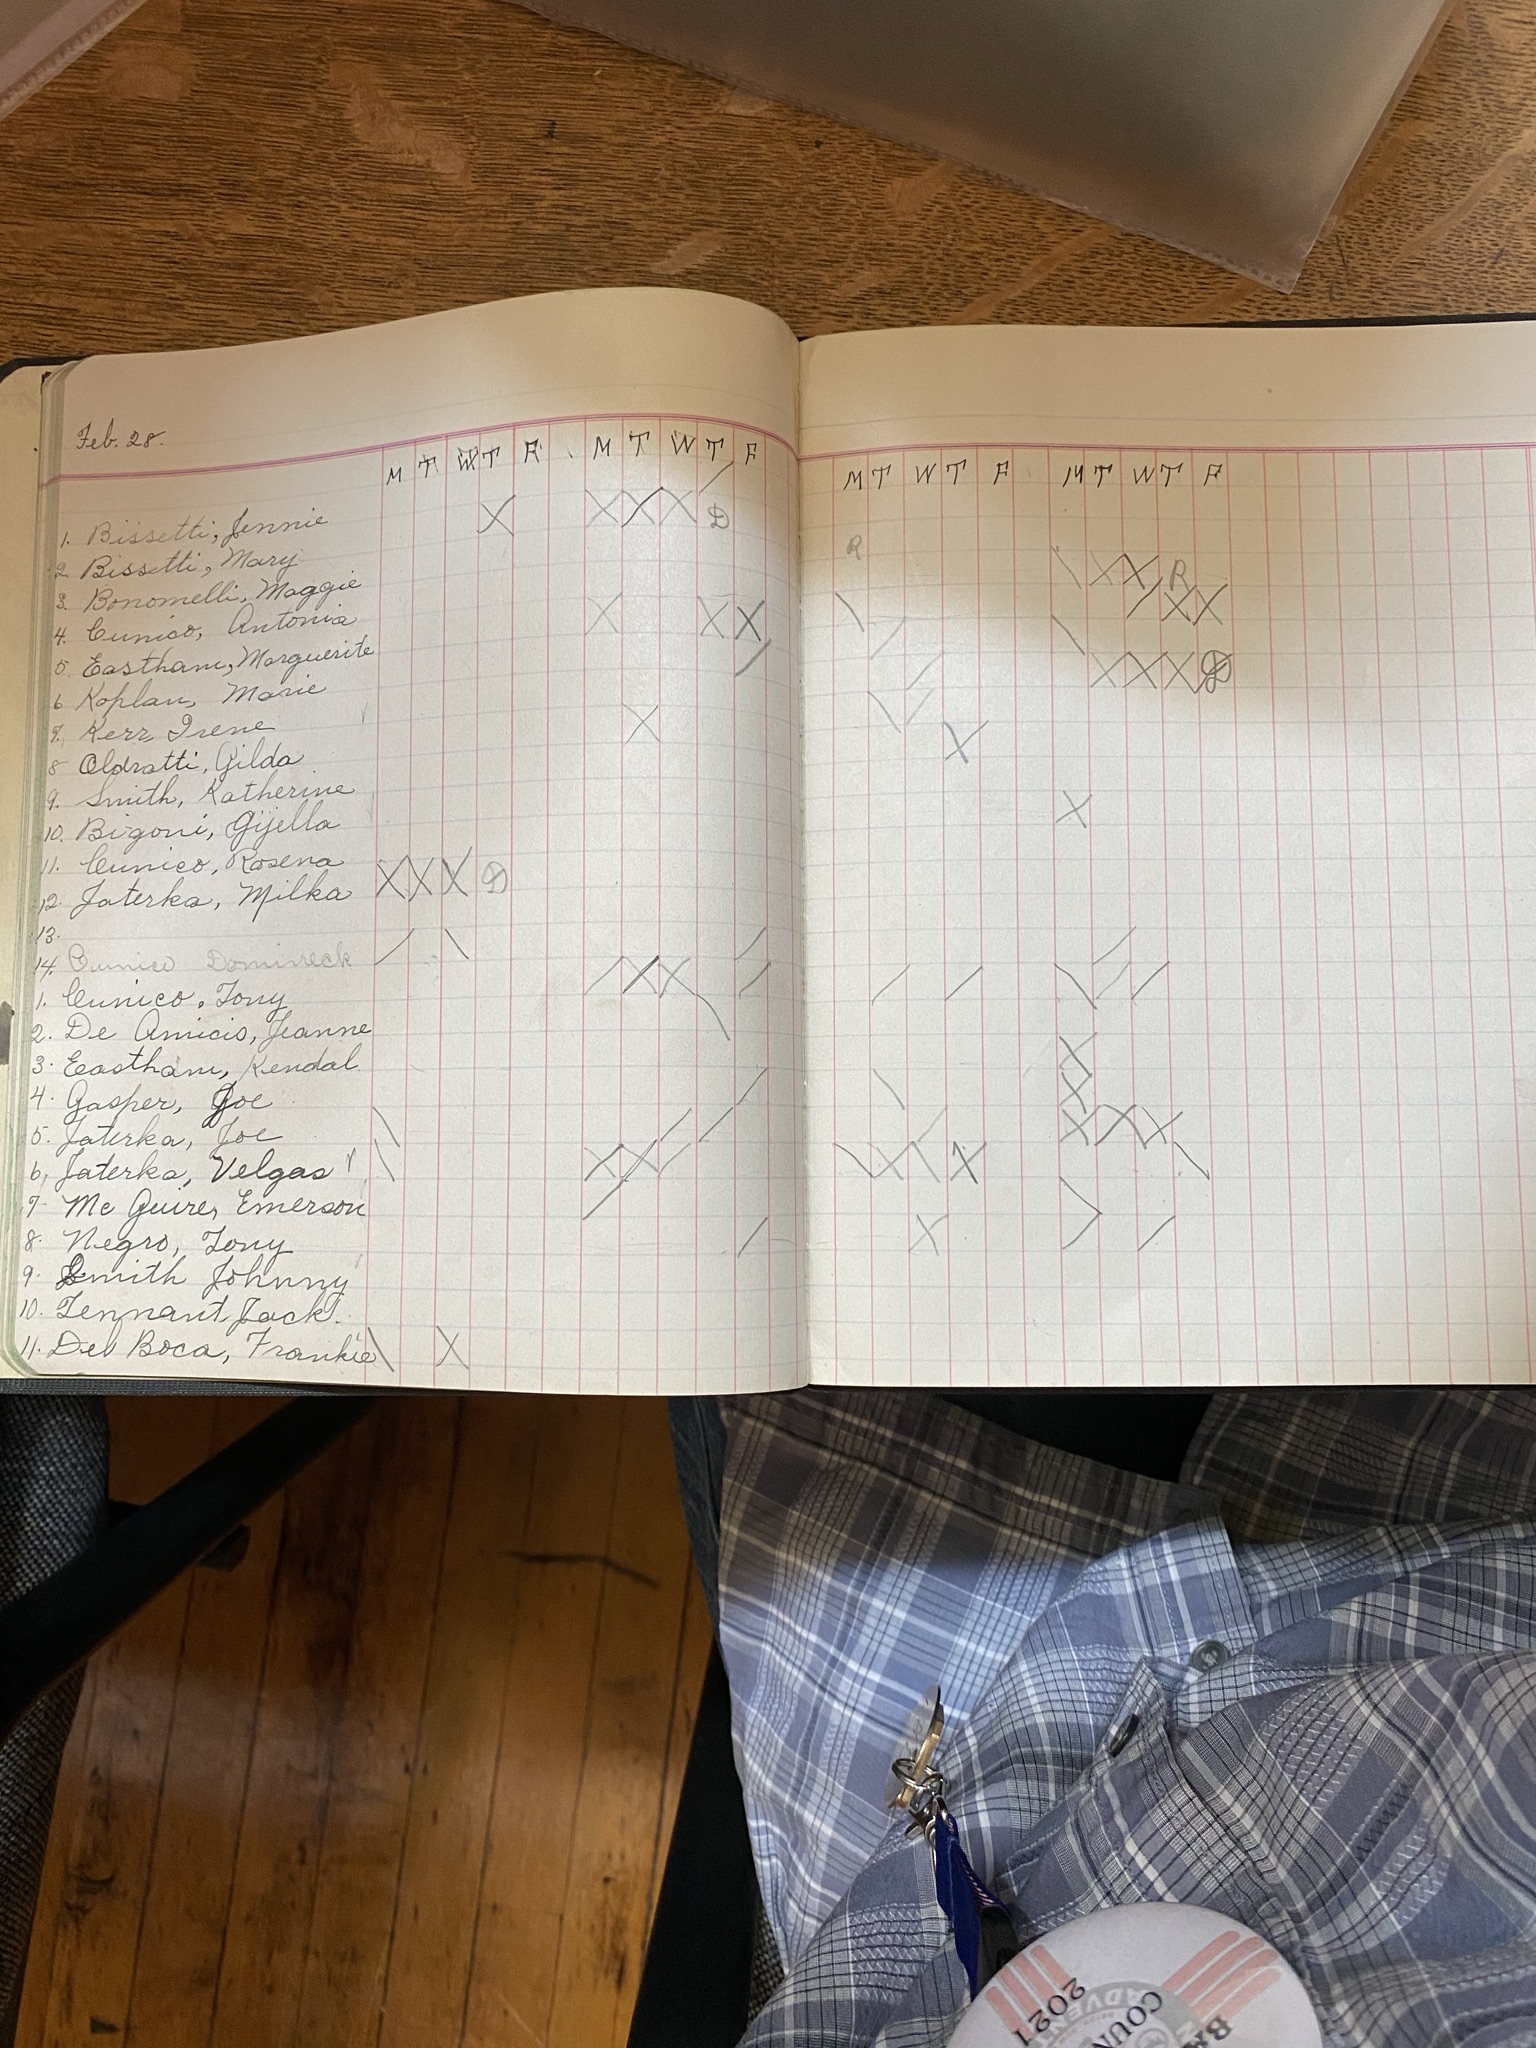 Feb. 28.
M T W T F M T W T F M T W T F M T W T F
1. Bissetti, Jennie X X X X D
2. Bissetti, Mary R X X R
3. Bonomelli, Maggie X X
4. Cunico, Antonia X X X
5. Eastham, Marguerite X X X D
6 Koplan, Marie
7. Kerr Irene X X
8 Oldratti, Gilda
9. Smith, Katherine X
10. Bigoni, Gijella
11. Cunico, Rosena
12. Jaterka, Milka X X X D
13.
14. Cunico Domineck
1. Cunico, Tony X X
2. De Amicis, Jeanne
3. Eastham, Kendal X
4. Gasper, Joe X
5. Jaterka, Joe X X X
6, Jaterka, Velgas X X X X
7- Mc Guire, Emerson
8. Negro, Tony X
9. Smith Johnny
10. Tennant, Jack T.
11. Del Boca, Frankie X
COUN
2021